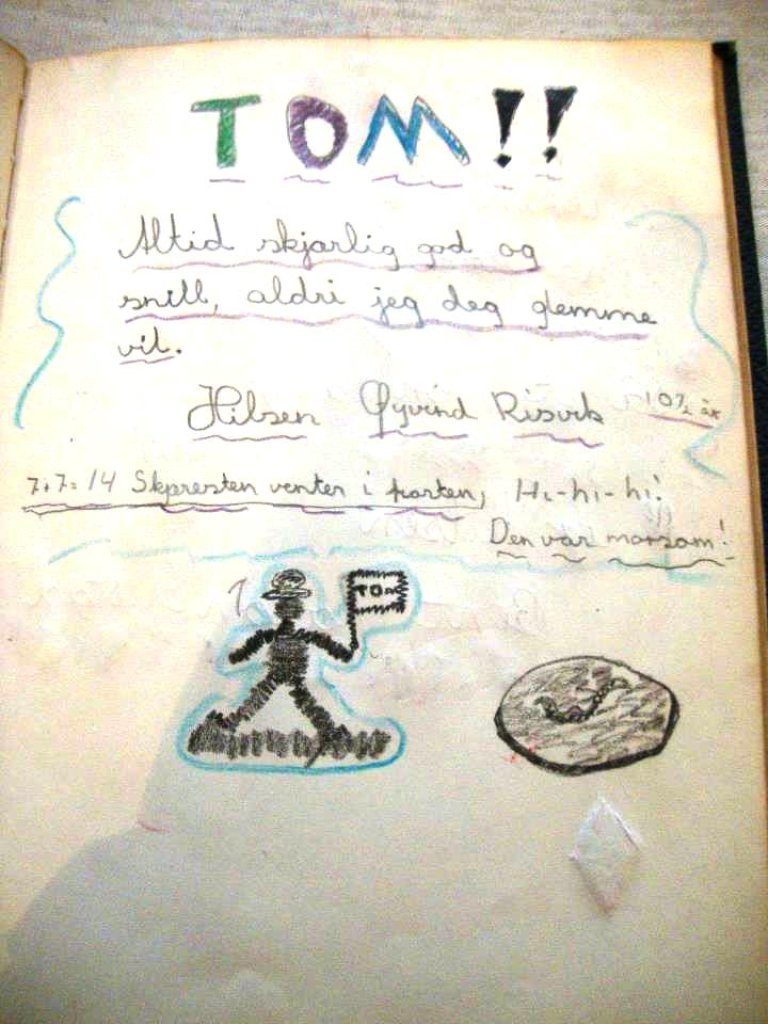 TOM!!
Altid skjærlig god og
snill, aldri jeg deg glemme
vil.
Hilsen Øyvind Risvik 10½ år
7+7=14 Skpresten venter i porten, Hi-hi-hi!
Den var morsom!
TOM